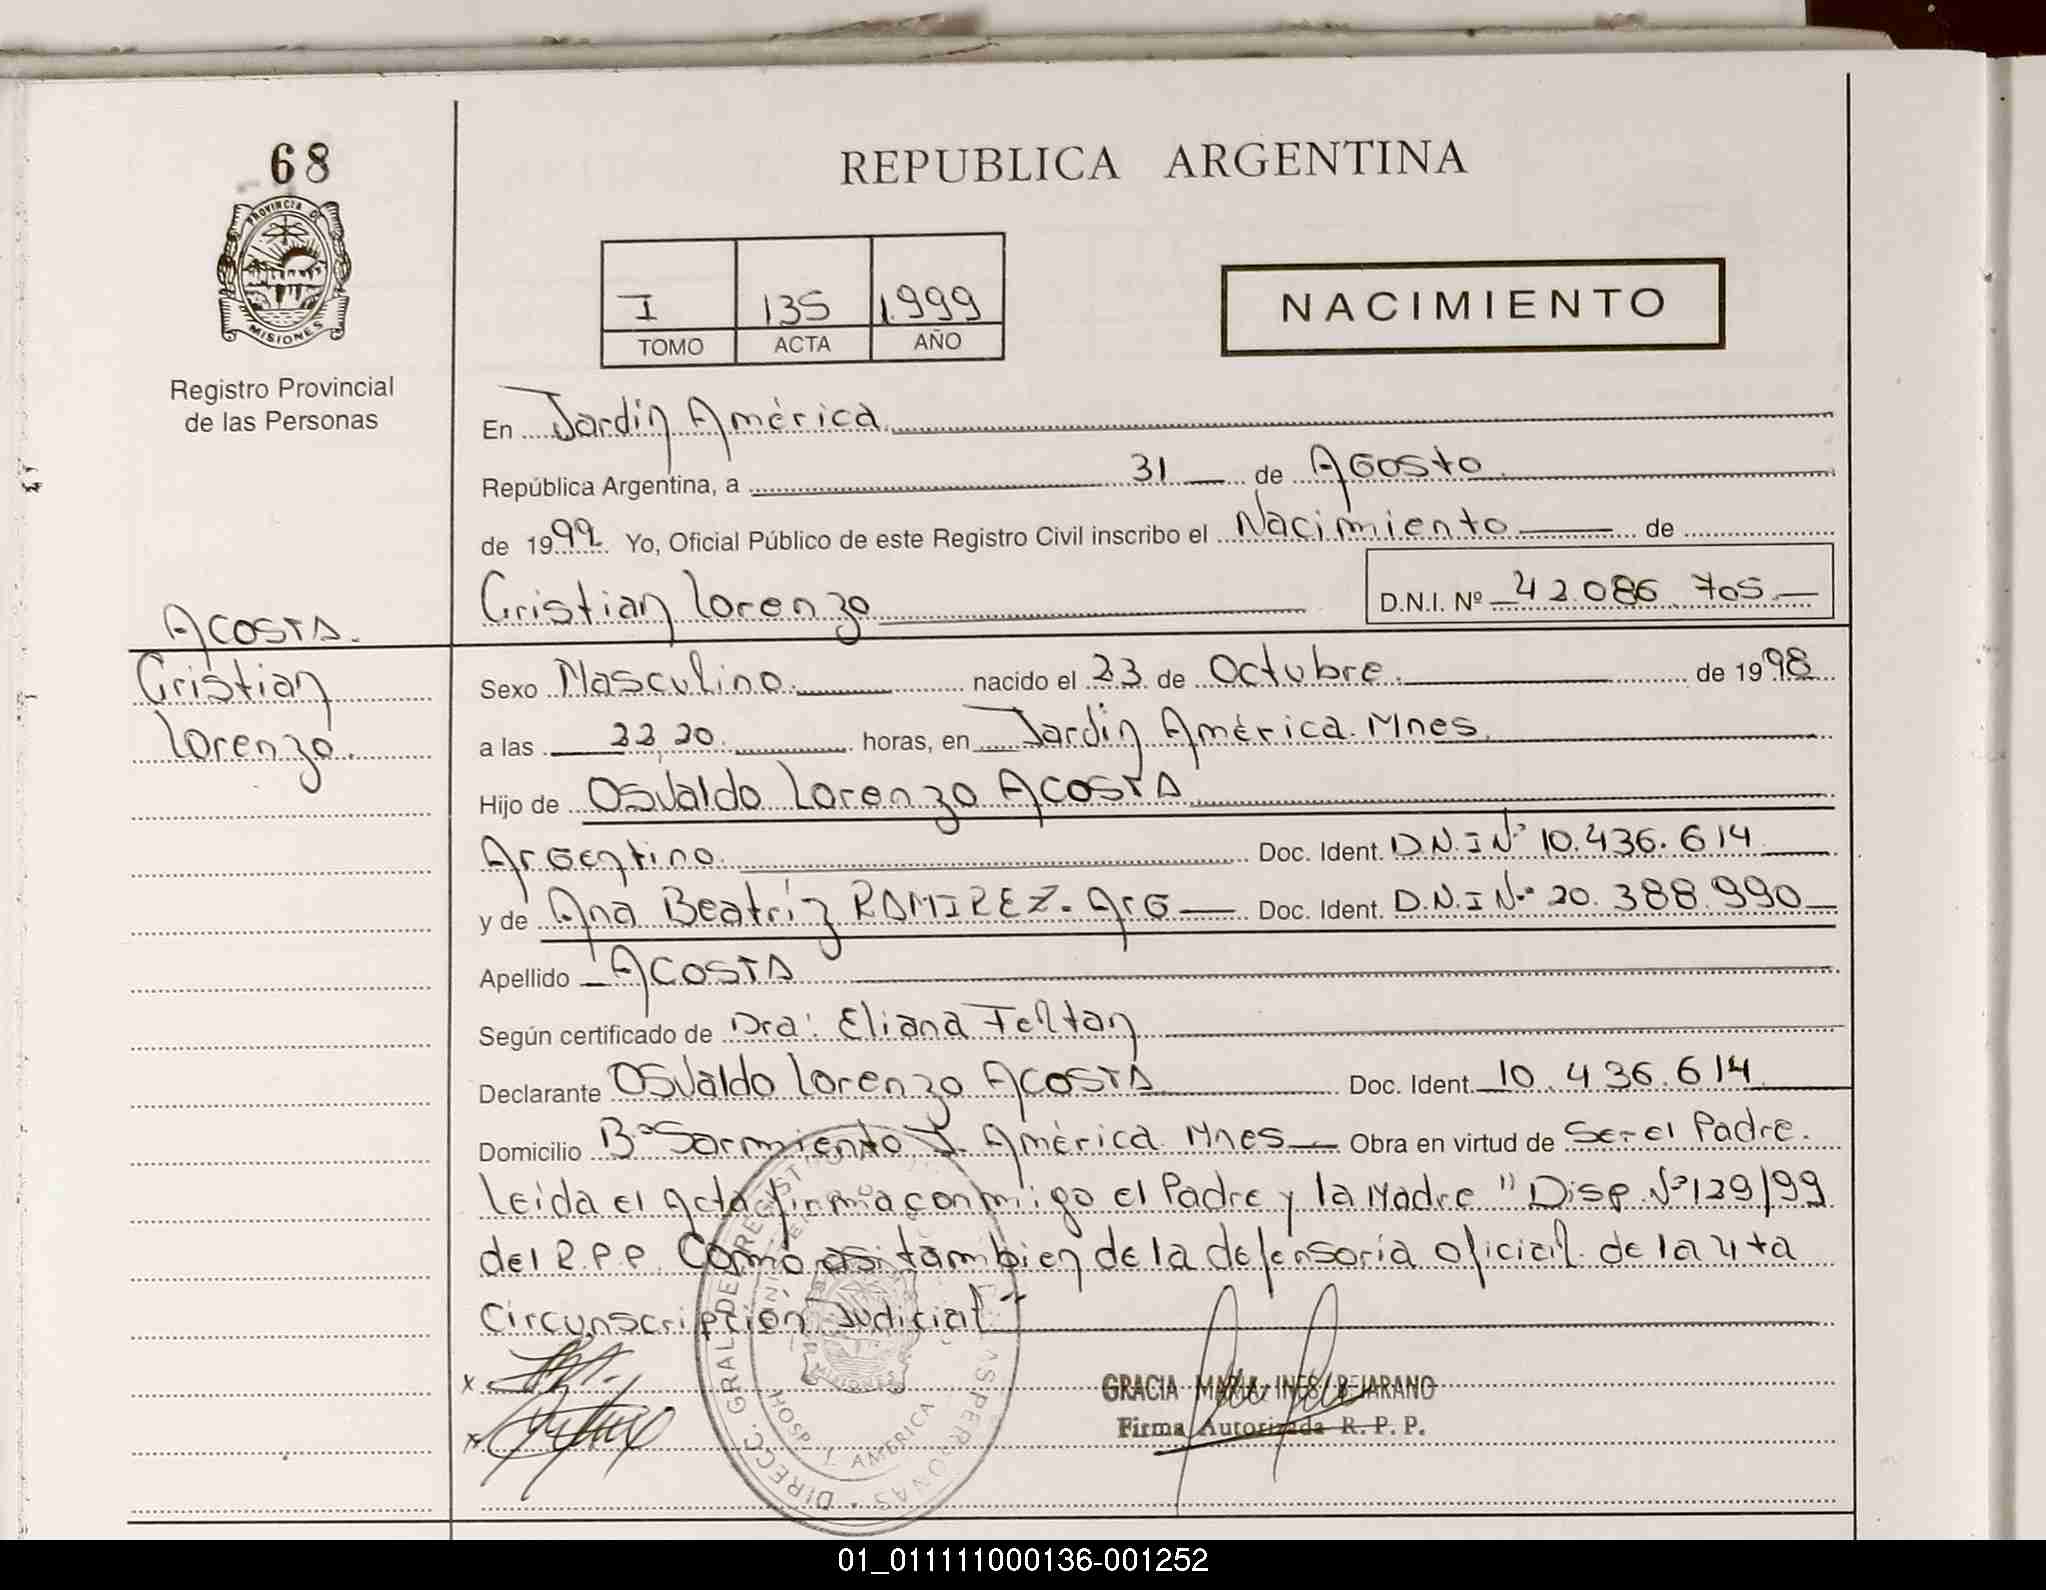 68
PROVINCIA D
MISIONES
Registro Provincial
de las Personas
REPUBLICA ARGENTINA
I 135 1.999
TOMO ACTA AÑO
NACIMIENTO
En Jardin América
República Argentina, a 31 de Agosto
de 1999 Yo, Oficial Público de este Registro Civil inscribo el Nacimiento de
Cristian Lorenzo D.N.I. Nº 42.086.705
ACOSTA.
Cristian
Lorenzo.
Sexo Masculino. nacido el 23 de Octubre. de 1998
a las 22,20. horas, en Jardin América. Mnes.
Hijo de Osvaldo Lorenzo ACOSTA
Argentino. Doc. Ident. D.N.I Nº 10.436.614
y de Ana Beatriz RAMIREZ. Arg Doc. Ident. D.N.I Nº 20.388.990
Apellido ACOSTA
Según certificado de Dra: Eliana
Declarante Osvaldo Lorenzo ACOSTA Doc. Ident. 10.436.614
Domicilio Bº Sarmiento J. América. Mnes Obra en virtud de Ser el Padre.
Leida el Acta firma conmigo el Padre y la Madre "Disp. Nº 129/99
del R.P.P. Como asi tambien de la defensoría oficial de la 4ta
Circunscripción Judicial"
x
x
GRACIA MARIA INES BEJARANO
Firma Autorizada R. P. P.
HOSP. J. AMERICA
01_011111000136-001252